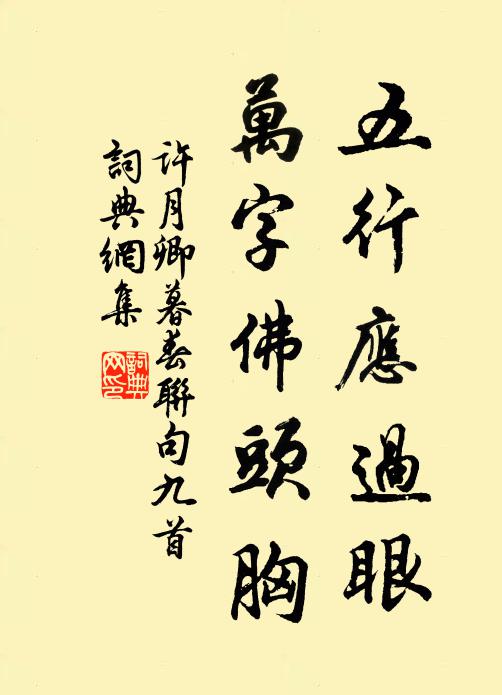 五行應過眼
萬字佛頭胸
許月卿暮春聯句九首
詞典網集
詞典网印